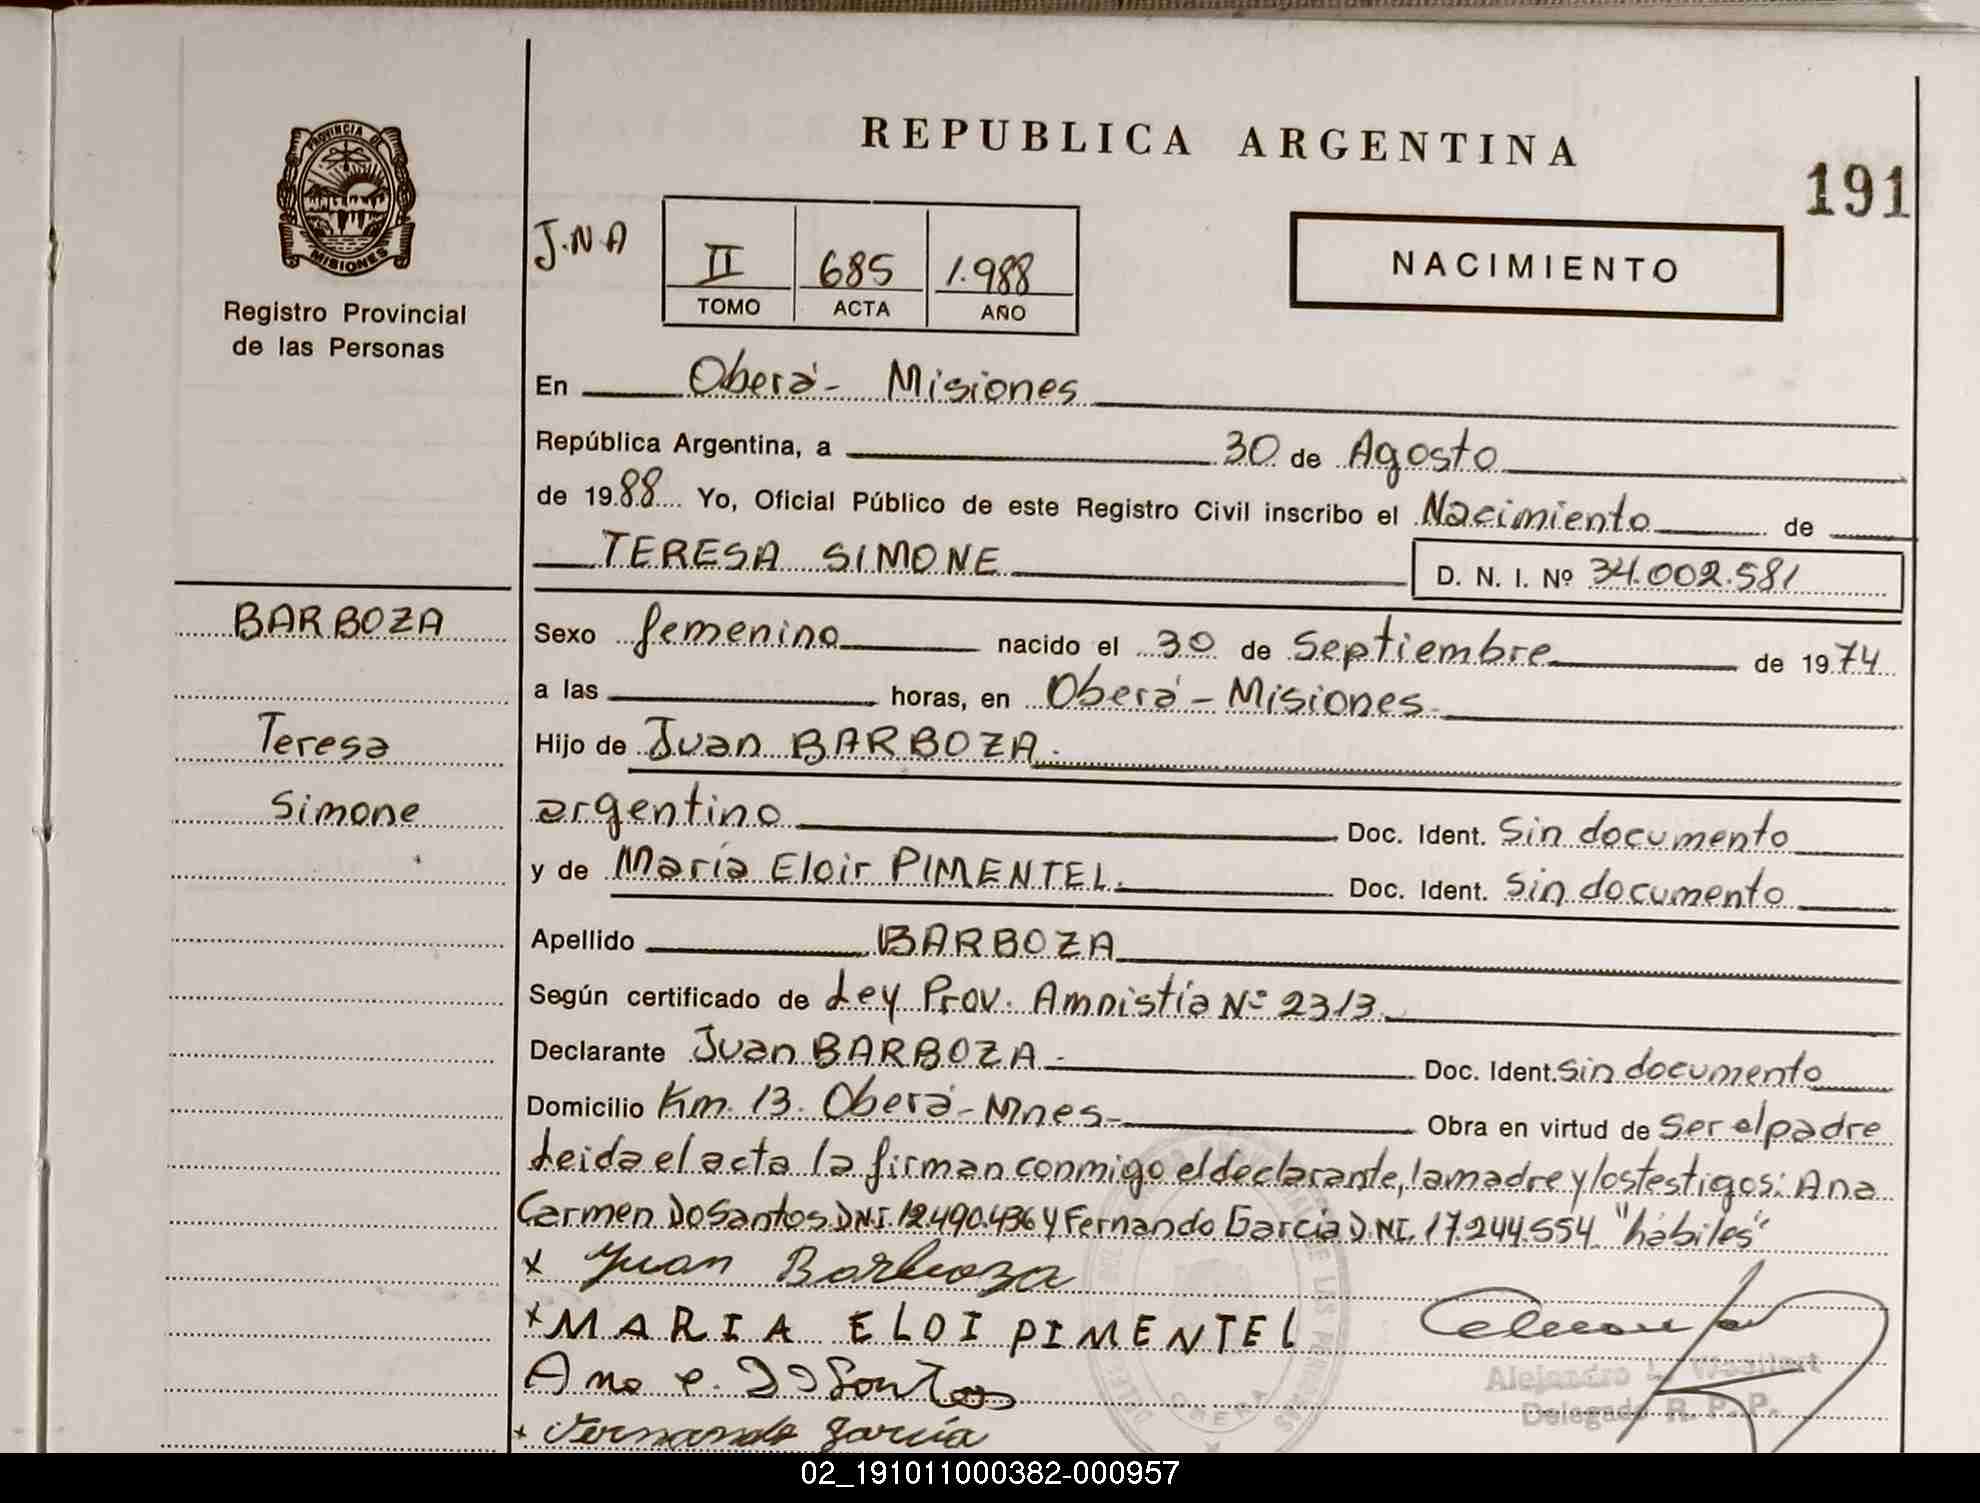 REPUBLICA ARGENTINA
191
PROVINCIA DE
MISIONES
Registro Provincial
de las Personas
J.N.A
II 685 1.988
TOMO ACTA AÑO
NACIMIENTO
En Oberá- Misiones
República Argentina, a 30 de Agosto
de 1988 Yo, Oficial Público de este Registro Civil inscribo el Nacimiento de
TERESA SIMONE D. N. I. Nº 34.002.581
BARBOZA
Teresa
Simone
Sexo femenino nacido el 30 de Septiembre de 1974
a las horas, en Oberá- Misiones
Hijo de Juan BARBOZA.
argentino Doc. Ident. Sin documento
y de María Eloir PIMENTEL. Doc. Ident. Sin documento
Apellido BARBOZA
Según certificado de Ley Prov. Amnistía Nº 2313
Declarante Juan BARBOZA- Doc. Ident. Sin documento
Domicilio Km. 13. Oberá-Mnes- Obra en virtud de Ser el padre
Leida el acta la firman conmigo el declarante, la madre y los testigos: Ana
Carmen DoSantos DNI. 12.490.436 y Fernando García D.NI. 17.244.554 "hábiles"
x Juan Barboza
x MARIA ELOI PIMENTEL
Ana C. Do Santos
x Fernando García
Alejandro L.
Delegado R. P. P.
OBERA
02_191011000382-000957